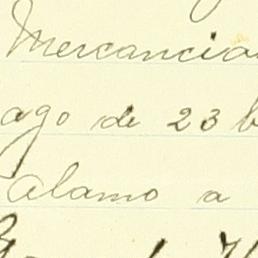 Mercancia
ago de 23 b
alamo a